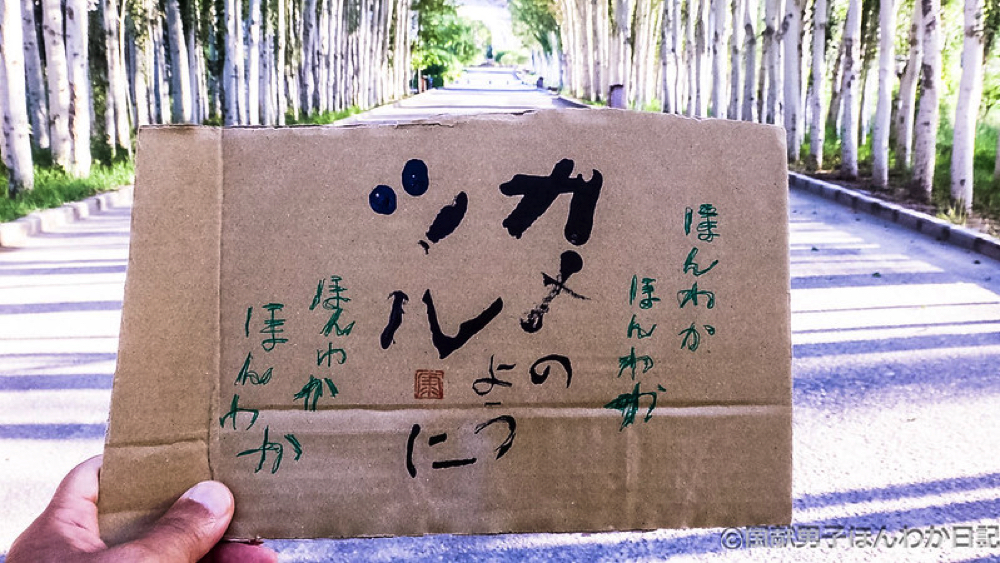 ほんわか
ほんわか
カメ
ツル
のように
ほんわか
ほんわか
男子ほんわか日記